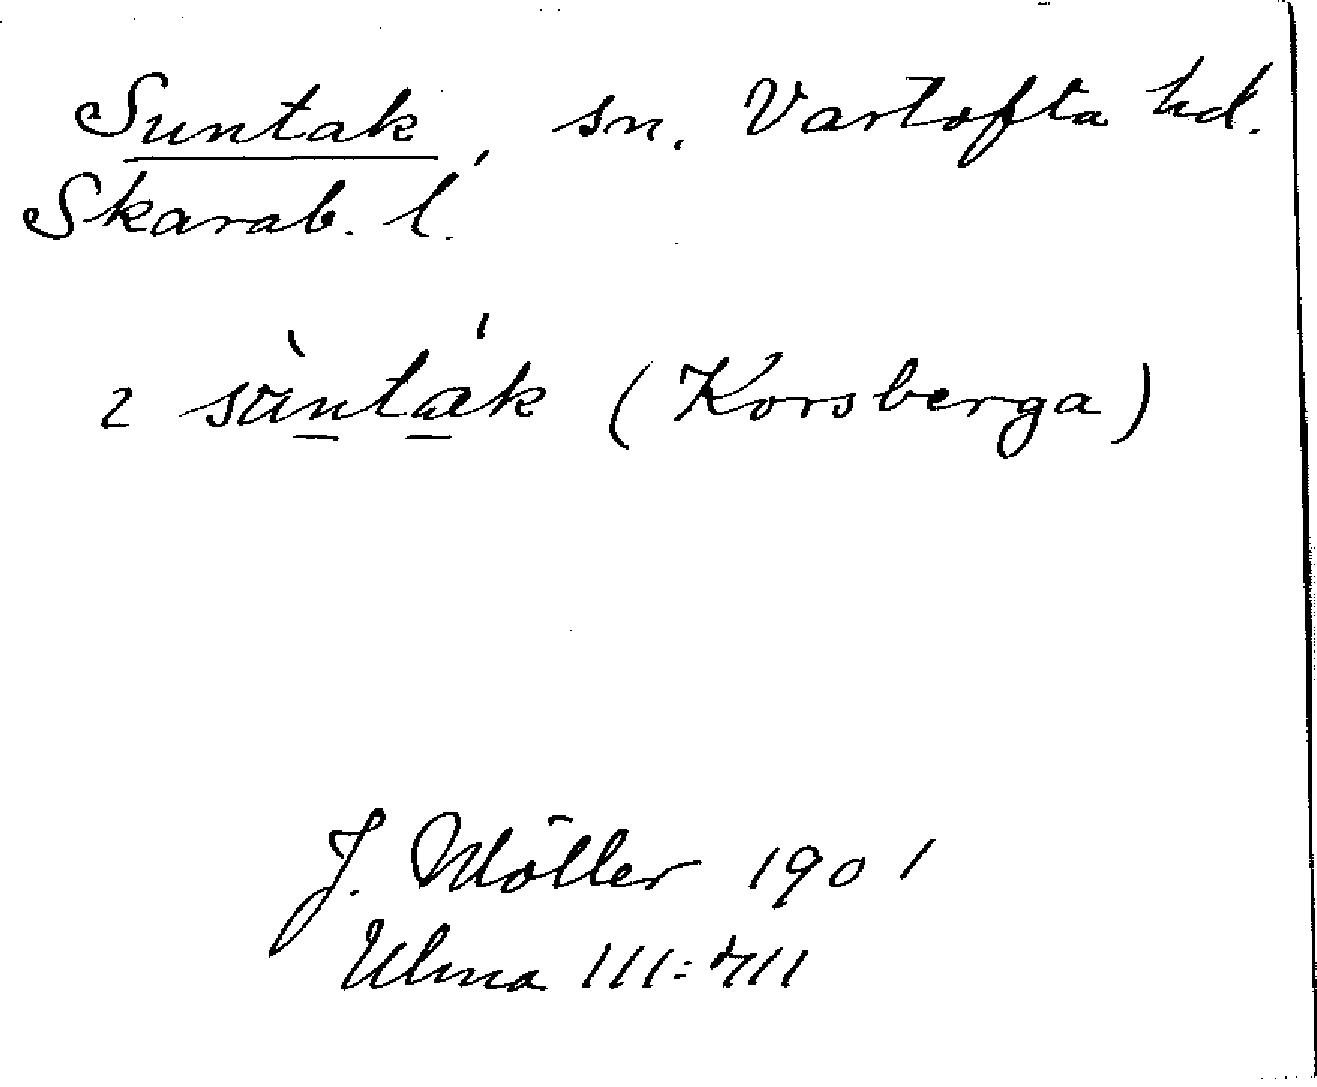 Suntak, sn. Vartofta hd.
Skarab. l.
2 sùnták (Korsberga)
J. Möller 1901
Ulma 111:711